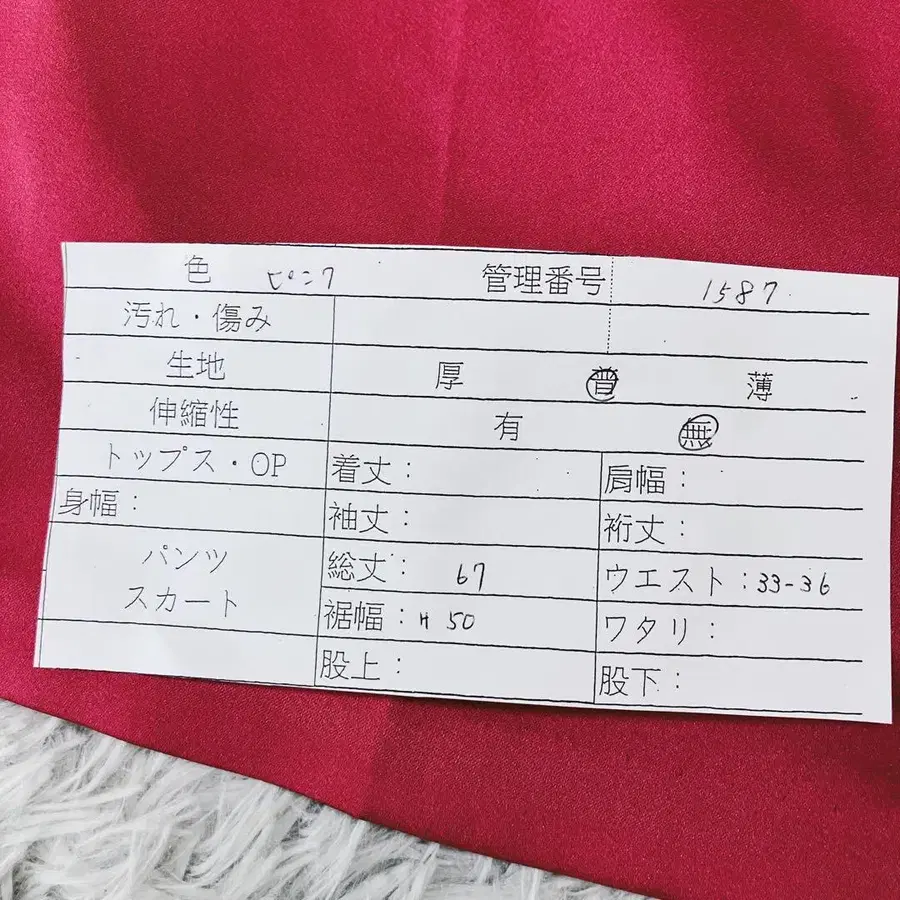 色 ピンク 管理番号 1587
汚れ・傷み
生地 厚 普 薄
伸縮性 有 無
トップス・OP 着丈： 肩幅：
身幅： 袖丈： 裄丈：
パンツ 総丈： 67 ウエスト：33-36
スカート 裾幅：H 50 ワタリ：
股上： 股下：